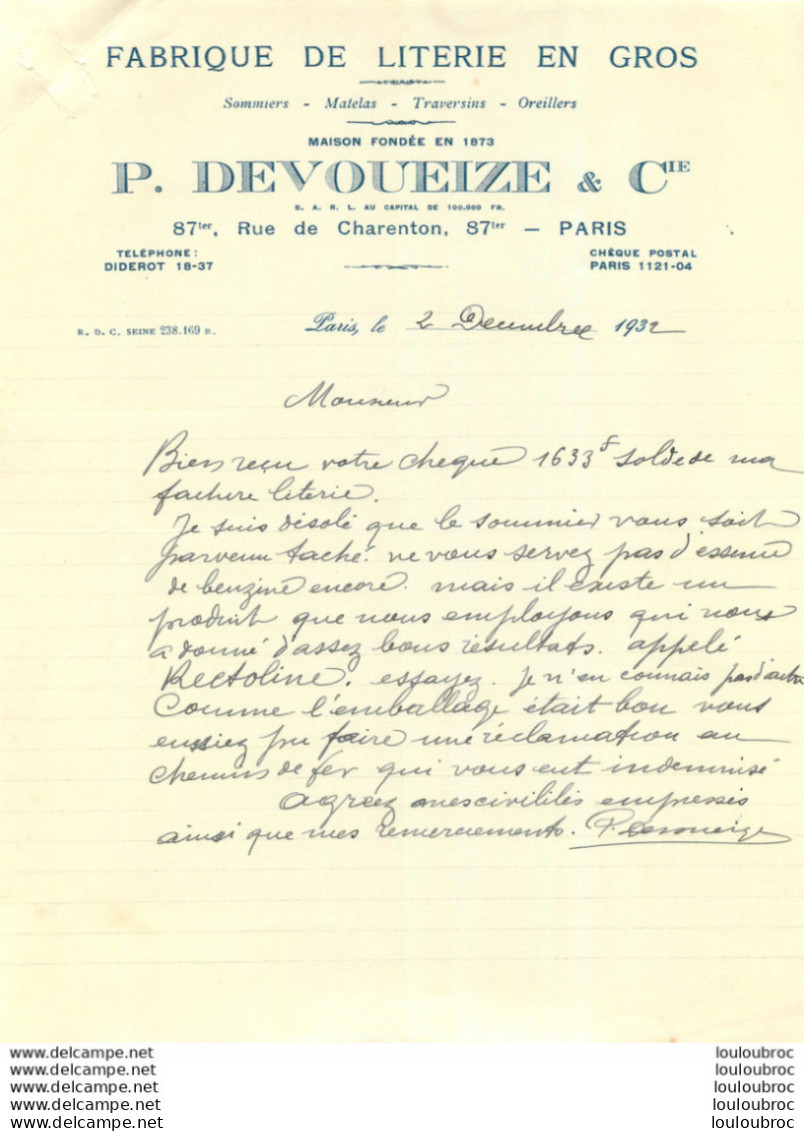 FABRIQUE DE LITERIE EN GROS
Sommiers - Matelas - Traversins - Oreillers
MAISON FONDÉE EN 1873
P. DEVOUEIZE & CIE
S. A. R. L. AU CAPITAL DE 100.000 FR.
87ter, Rue de Charenton, 87ter — PARIS
TELÉPHONE :
DIDEROT 18-37
CHÈQUE POSTAL
PARIS 1121-04
R. D. C. SEINE 238.169 B.
Paris, le 2 Decembre 1932
Monsieur
Bien reçu votre cheque 1633f solde de ma
facture literie.
Je suis désolé que le sommier vous soit
parvenu taché. ne vous servez pas d'essence
de benzine encore. mais il existe un
produit que nous employons qui nous
a donné d'assez bons résultats. appelé
Rectoline. essayez. Je n'en connais pas d'autre
Comme l'emballage était bon vous
eussiez pu faire une réclamation au
chemins de fer qui vous eut indemnisé
agréez mes civilités empressés
ainsi que mes remerciements. P. Devoueize
www.delcampe.net
www.delcampe.net
www.delcampe.net
www.delcampe.net
www.delcampe.net
louloubroc
louloubroc
louloubroc
louloubroc
louloubroc